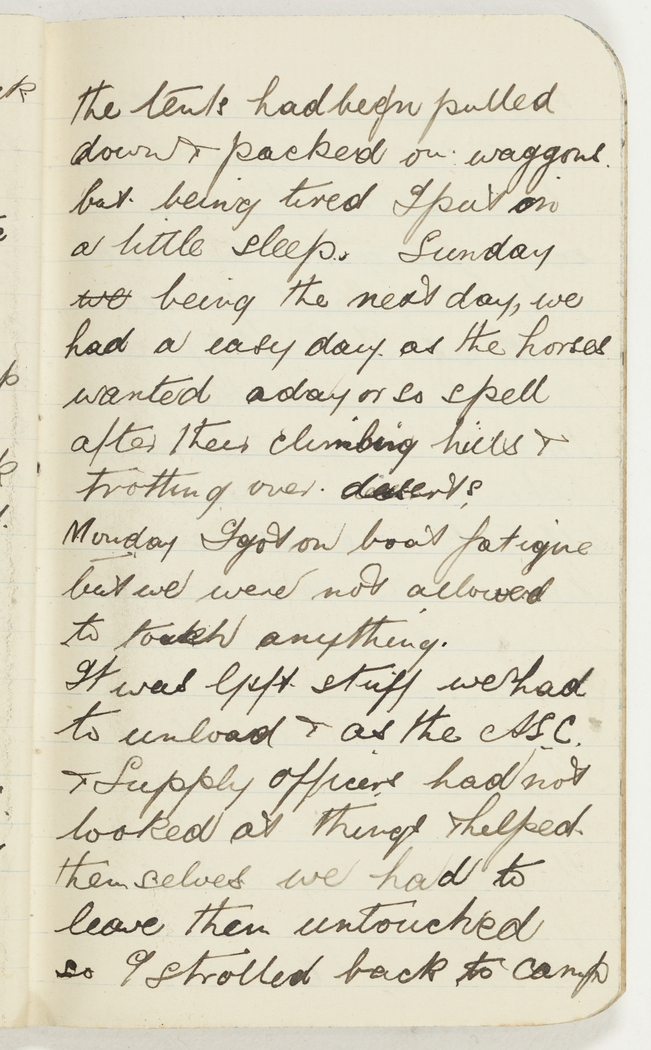 the tents had been pulled
down & packed on waggons.
but being tired I put in
a little sleep. Sunday
we being the next day, we
had a easy day as the horses
wanted a day or so spell
after their climbing hills &
trotting over deserts.
Monday I got on boat fatigue
but we were not allowed
to touch anything.
It was stuff we had
to unload & as the ASC.
& Supply officers had not
looked at things & helped
themselves we had to
leave them untouched
so I strolled back to camp